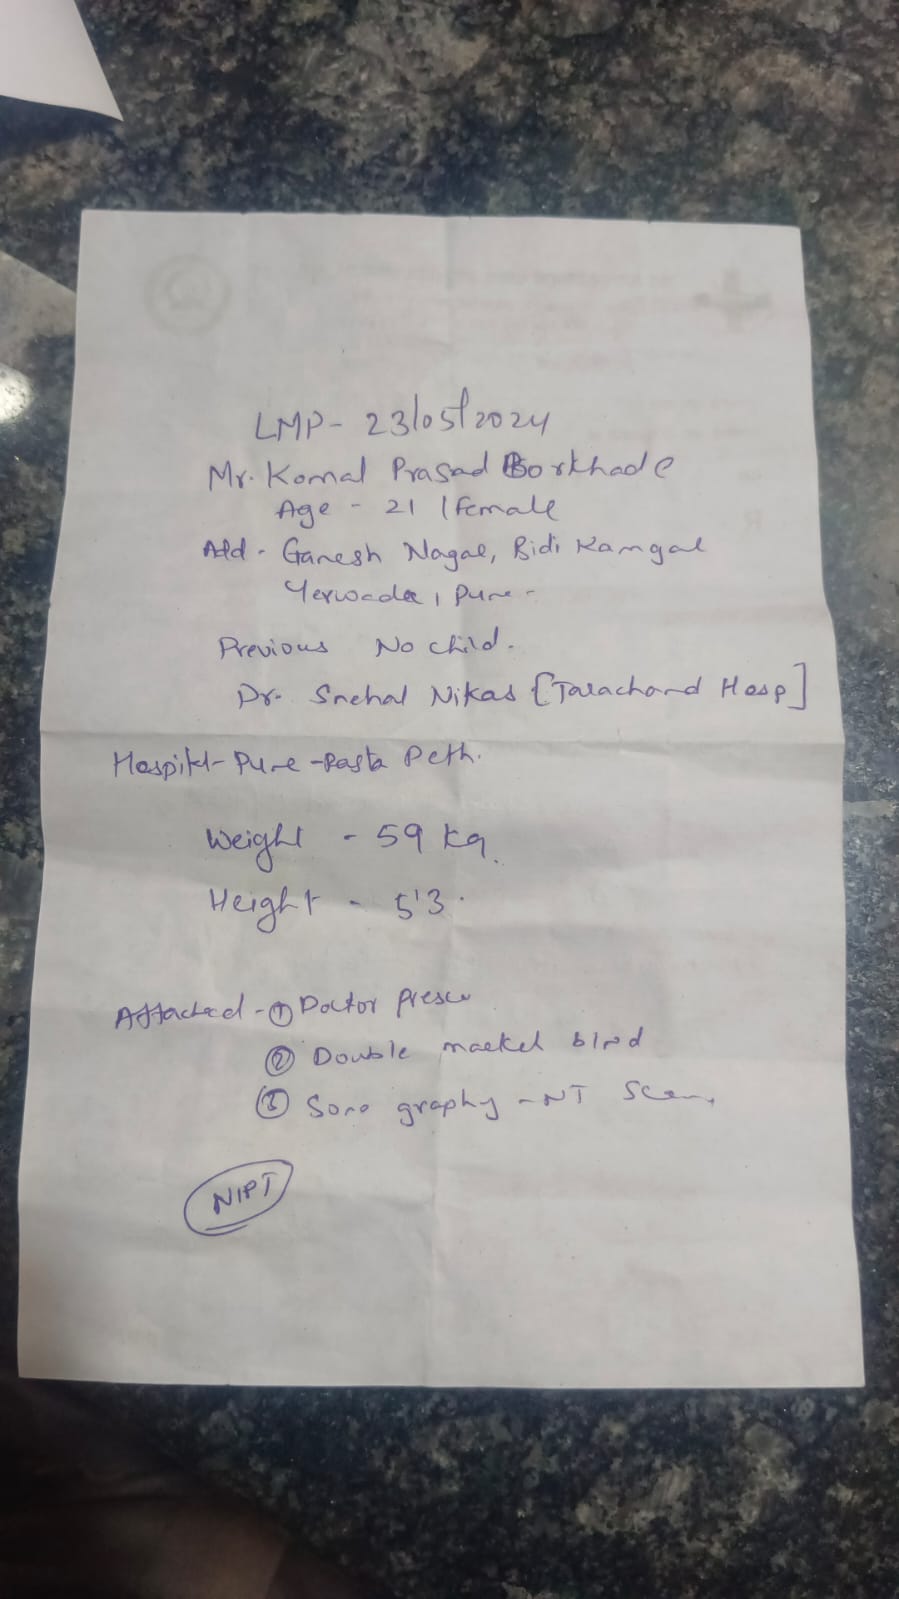 LMP - 23/05/2024
Mr. Komal Prasad Borkhade
Age - 21 / female
Add - Ganesh Nagar, Bidi Kamgar
Yerwada, Pune -
Previous No child.
Dr. Snehal Nikas [Tarachand Hosp]
Hospital - Pune - Rasta Peth.
Weight - 59 kg.
Height - 5'3.
Attached - ① Doctor presc
② Double marker blod
③ Sonography - NT Scan,
NIPT